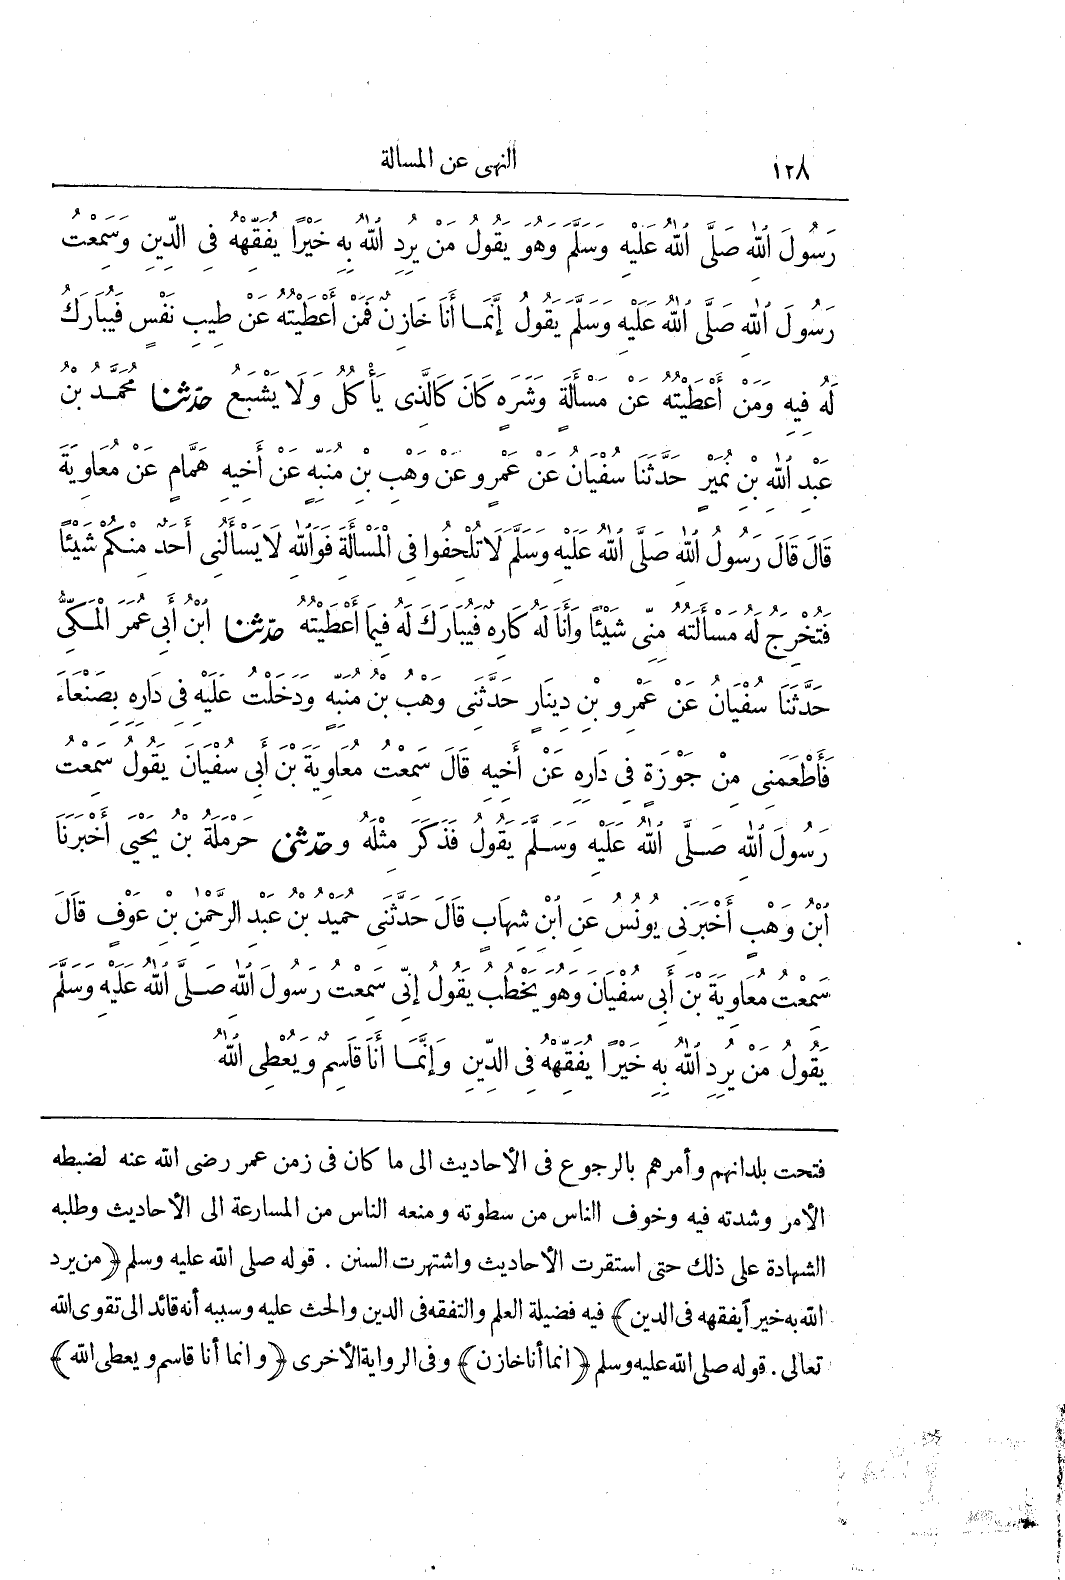 ١٢٨ النهى عن المسألة
رَسُولَ اللهِ صَلَّى اللهُ عَلَيْهِ وَسَلَّمَ وَهُوَ يَقُولُ مَنْ يُرِدِ اللهُ بِهِ خَيْرًا يُفَقِّهْهُ فِى الدِّينِ وَسَمِعْتُ
رَسُولَ اللهِ صَلَّى اللهُ عَلَيْهِ وَسَلَّمَ يَقُولُ إِنَّمَا أَنَا خَازِنٌ فَمَنْ أَعْطَيْتُهُ عَنْ طِيبِ نَفْسٍ فَيُبَارَكُ
لَهُ فِيهِ وَمَنْ أَعْطَيْتُهُ عَنْ مَسْأَلَةٍ وَشَرَهٍ كَانَ كَالَّذِى يَأْكُلُ وَلَا يَشْبَعُ حدثنا مُحَمَّدُ بْنُ
عَبْدِ اللهِ بْنِ نُمَيْرٍ حَدَّثَنَا سُفْيَانُ عَنْ عَمْرٍو عَنْ وَهْبِ بْنِ مُنَبِّهٍ عَنْ أَخِيهِ هَمَّامٍ عَنْ مُعَاوِيَةَ
قَالَ قَالَ رَسُولُ اللهِ صَلَّى اللهُ عَلَيْهِ وَسَلَّمَ لَا تُلْحِفُوا فِى الْمَسْأَلَةِ فَوَاللهِ لَا يَسْأَلُنِى أَحَدٌ مِنْكُمْ شَيْئًا
فَتُخْرِجُ لَهُ مَسْأَلَتُهُ مِنِّى شَيْئًا وَأَنَا لَهُ كَارِهٌ فَيُبَارَكَ لَهُ فِيمَا أَعْطَيْتُهُ حدثنا ابْنُ أَبِى عُمَرَ الْمَكِّىُّ
حَدَّثَنَا سُفْيَانُ عَنْ عَمْرِو بْنِ دِينَارٍ حَدَّثَنِى وَهْبُ بْنُ مُنَبِّهٍ وَدَخَلْتُ عَلَيْهِ فِى دَارِهِ بِصَنْعَاءَ
فَأَطْعَمَنِى مِنْ جَوْزَةٍ فِى دَارِهِ عَنْ أَخِيهِ قَالَ سَمِعْتُ مُعَاوِيَةَ بْنَ أَبِى سُفْيَانَ يَقُولُ سَمِعْتُ
رَسُولَ اللهِ صَلَّى اللهُ عَلَيْهِ وَسَلَّمَ يَقُولُ فَذَكَرَ مِثْلَهُ وحدثنى حَرْمَلَةُ بْنُ يَحْيَى أَخْبَرَنَا
ابْنُ وَهْبٍ أَخْبَرَنِى يُونُسُ عَنِ ابْنِ شِهَابٍ قَالَ حَدَّثَنِى حُمَيْدُ بْنُ عَبْدِ الرَّحْمٰنِ بْنِ عَوْفٍ قَالَ
سَمِعْتُ مُعَاوِيَةَ بْنَ أَبِى سُفْيَانَ وَهُوَ يَخْطُبُ يَقُولُ إِنِّى سَمِعْتُ رَسُولَ اللهِ صَلَّى اللهُ عَلَيْهِ وَسَلَّمَ
يَقُولُ مَنْ يُرِدِ اللهُ بِهِ خَيْرًا يُفَقِّهْهُ فِى الدِّينِ وَإِنَّمَا أَنَا قَاسِمٌ وَيُعْطِى اللهُ
فتحت بلدانهم وأمرهم بالرجوع فى الأحاديث الى ما كان فى زمن عمر رضى الله عنه لضبطه
الأمر وشدته فيه وخوف الناس من سطوته ومنعه الناس من المسارعة الى الأحاديث وطلبه
الشهادة على ذلك حتى استقرت الأحاديث واشتهرت السنن . قوله صلى الله عليه وسلم ﴿من يرد
الله به خيرا يفقهه فى الدين﴾ فيه فضيلة العلم والتفقه فى الدين والحث عليه وسببه أنه قائد الى تقوى الله
تعالى . قوله صلى الله عليه وسلم ﴿انما أنا خازن﴾ وفى الرواية الأخرى ﴿وانما أنا قاسم ويعطى الله﴾